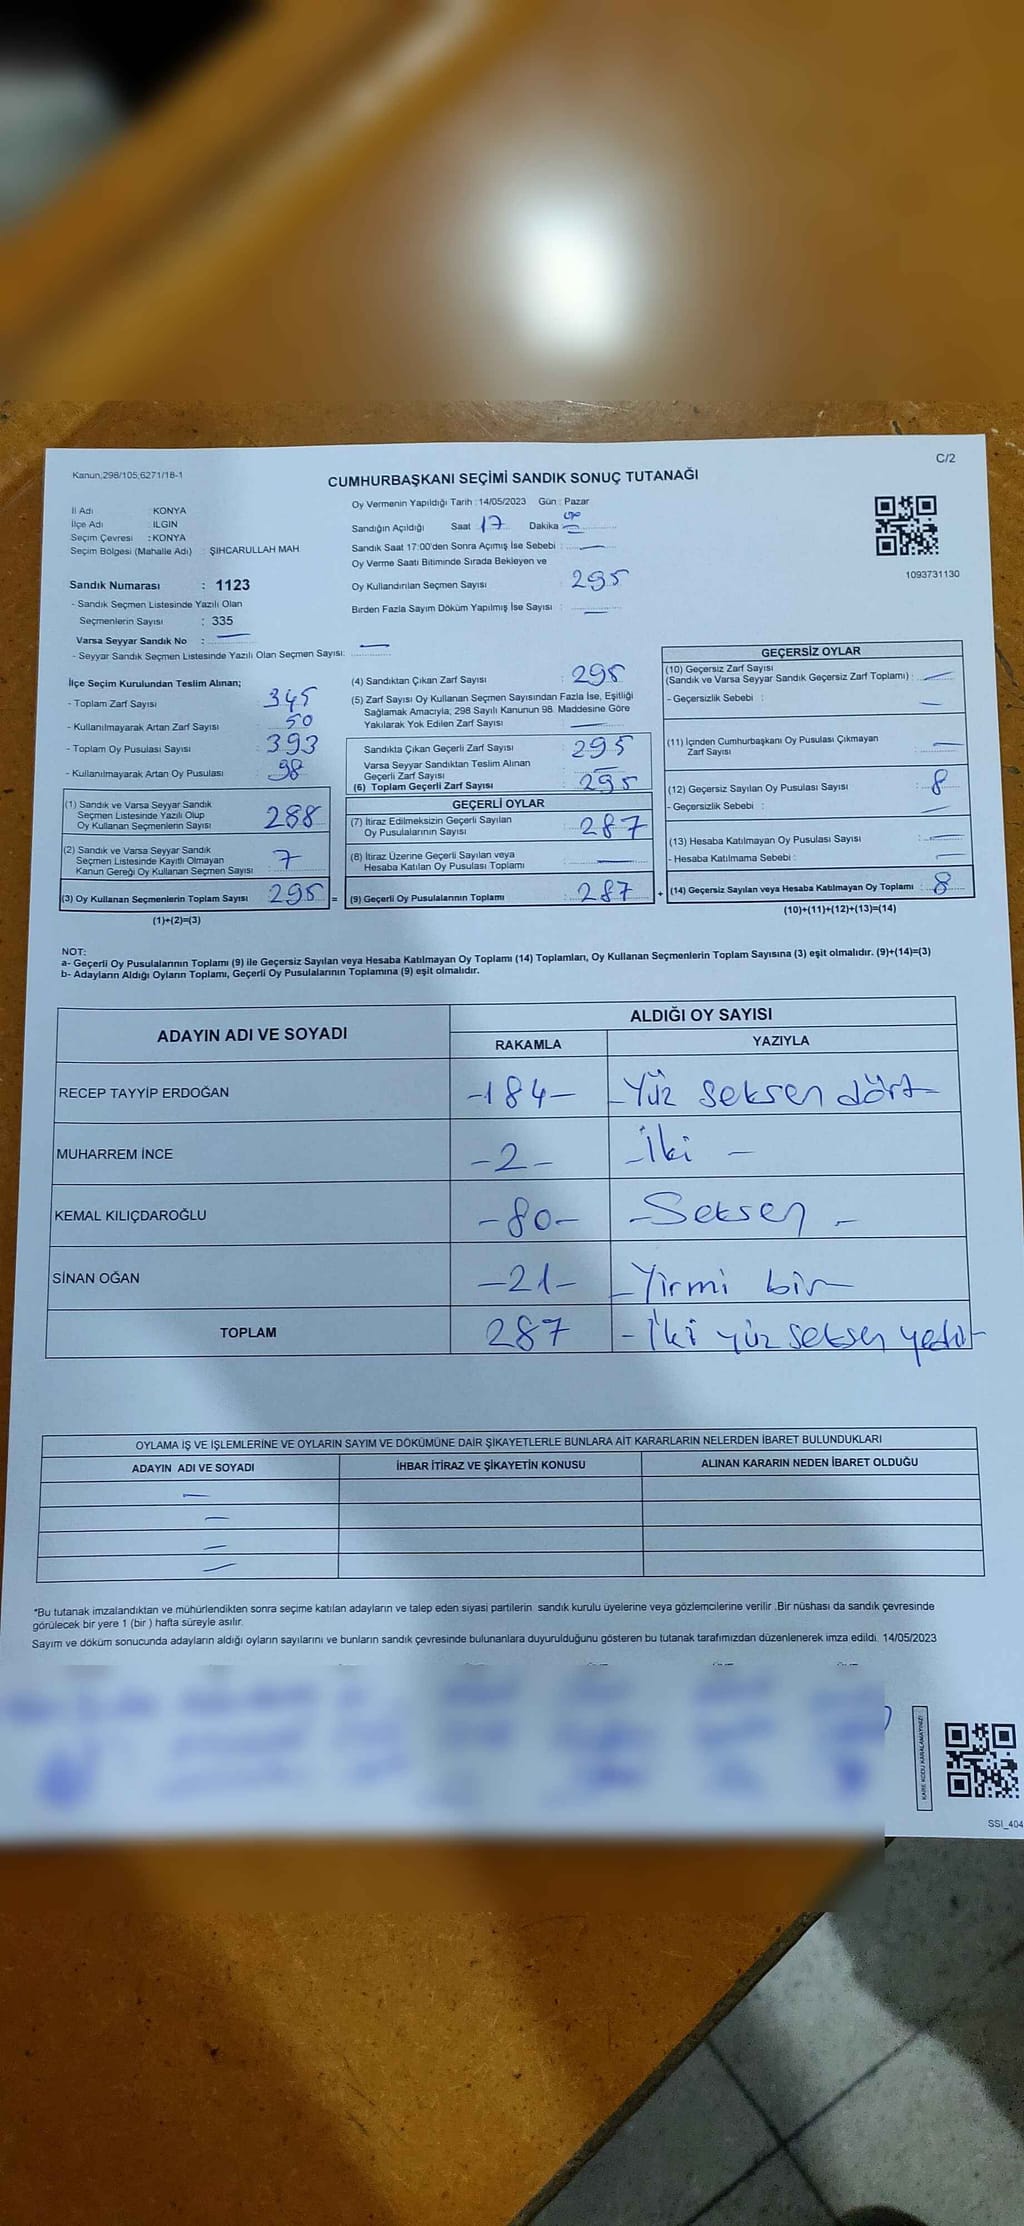 Kanun;298/105,6271/18-1
C/2
CUMHURBAŞKANI SEÇİMİ SANDIK SONUÇ TUTANAĞI
İl Adı : KONYA
İlçe Adı : ILGIN
Seçim Çevresi : KONYA
Seçim Bölgesi (Mahalle Adı) : ŞIHCARULLAH MAH
Sandık Numarası : 1123
- Sandık Seçmen Listesinde Yazılı Olan
Seçmenlerin Sayısı : 335
Varsa Seyyar Sandık No : —
- Seyyar Sandık Seçmen Listesinde Yazılı Olan Seçmen Sayısı: —
Oy Vermenin Yapıldığı Tarih : 14/05/2023 Gün : Pazar
Sandığın Açıldığı Saat 17 Dakika
Sandık Saat 17:00'den Sonra Açımış İse Sebebi : —
Oy Verme Saati Bitiminde Sırada Bekleyen ve
Oy Kullandırılan Seçmen Sayısı : 295
Birden Fazla Sayım Döküm Yapılmış İse Sayısı : —
1093731130
İlçe Seçim Kurulundan Teslim Alınan;
- Toplam Zarf Sayısı : 345
- Kullanılmayarak Artan Zarf Sayısı : 50
- Toplam Oy Pusulası Sayısı : 393
- Kullanılmayarak Artan Oy Pusulası : 98
(1) Sandık ve Varsa Seyyar Sandık
Seçmen Listesinde Yazılı Olup
Oy Kullanan Seçmenlerin Sayısı : 288
(2) Sandık ve Varsa Seyyar Sandık
Seçmen Listesinde Kayıtlı Olmayan
Kanun Gereği Oy Kullanan Seçmen Sayısı : 7
(3) Oy Kullanan Seçmenlerin Toplam Sayısı : 295 =
(1)+(2)=(3)
(4) Sandıktan Çıkan Zarf Sayısı : 295
(5) Zarf Sayısı Oy Kullanan Seçmen Sayısından Fazla İse, Eşitliği
Sağlamak Amacıyla, 298 Sayılı Kanunun 98. Maddesine Göre
Yakılarak Yok Edilen Zarf Sayısı : —
Sandıkta Çıkan Geçerli Zarf Sayısı : 295
Varsa Seyyar Sandıktan Teslim Alınan
Geçerli Zarf Sayısı : —
(6) Toplam Geçerli Zarf Sayısı : 295
GEÇERLİ OYLAR
(7) İtiraz Edilmeksizin Geçerli Sayılan
Oy Pusulalarının Sayısı : 287
(8) İtiraz Üzerine Geçerli Sayılan veya
Hesaba Katılan Oy Pusulası Toplamı : —
(9) Geçerli Oy Pusulalarının Toplamı : 287 +
GEÇERSİZ OYLAR
(10) Geçersiz Zarf Sayısı
(Sandık ve Varsa Seyyar Sandık Geçersiz Zarf Toplamı) : —
- Geçersizlik Sebebi : —
(11) İçinden Cumhurbaşkanı Oy Pusulası Çıkmayan
Zarf Sayısı : —
(12) Geçersiz Sayılan Oy Pusulası Sayısı : 8
- Geçersizlik Sebebi : —
(13) Hesaba Katılmayan Oy Pusulası Sayısı : —
- Hesaba Katılmama Sebebi : —
(14) Geçersiz Sayılan veya Hesaba Katılmayan Oy Toplamı : 8
(10)+(11)+(12)+(13)=(14)
NOT:
a- Geçerli Oy Pusulalarının Toplamı (9) ile Geçersiz Sayılan veya Hesaba Katılmayan Oy Toplamı (14) Toplamları, Oy Kullanan Seçmenlerin Toplam Sayısına (3) eşit olmalıdır. (9)+(14)=(3)
b- Adayların Aldığı Oyların Toplamı, Geçerli Oy Pusulalarının Toplamına (9) eşit olmalıdır.
ADAYIN ADI VE SOYADI
ALDIĞI OY SAYISI
RAKAMLA YAZIYLA
RECEP TAYYİP ERDOĞAN -184- -Yüz seksen dört-
MUHARREM İNCE -2- -İki -
KEMAL KILIÇDAROĞLU -80- -Seksen -
SİNAN OĞAN -21- -Yirmi bir-
TOPLAM 287 -İki yüz seksen yedi-
OYLAMA İŞ VE İŞLEMLERİNE VE OYLARIN SAYIM VE DÖKÜMÜNE DAİR ŞİKAYETLERLE BUNLARA AİT KARARLARIN NELERDEN İBARET BULUNDUKLARI
ADAYIN ADI VE SOYADI İHBAR İTİRAZ VE ŞİKAYETİN KONUSU ALINAN KARARIN NEDEN İBARET OLDUĞU
—
—
—
—
*Bu tutanak imzalandıktan ve mühürlendikten sonra seçime katılan adayların ve talep eden siyasi partilerin sandık kurulu üyelerine veya gözlemcilerine verilir .Bir nüshası da sandık çevresinde
görülecek bir yere 1 (bir ) hafta süreyle asılır.
Sayım ve döküm sonucunda adayların aldığı oyların sayılarını ve bunların sandık çevresinde bulunanlara duyurulduğunu gösteren bu tutanak tarafımızdan düzenlenerek imza edildi. 14/05/2023
KARE KODU KARALAMAYINIZ!
SSI_404